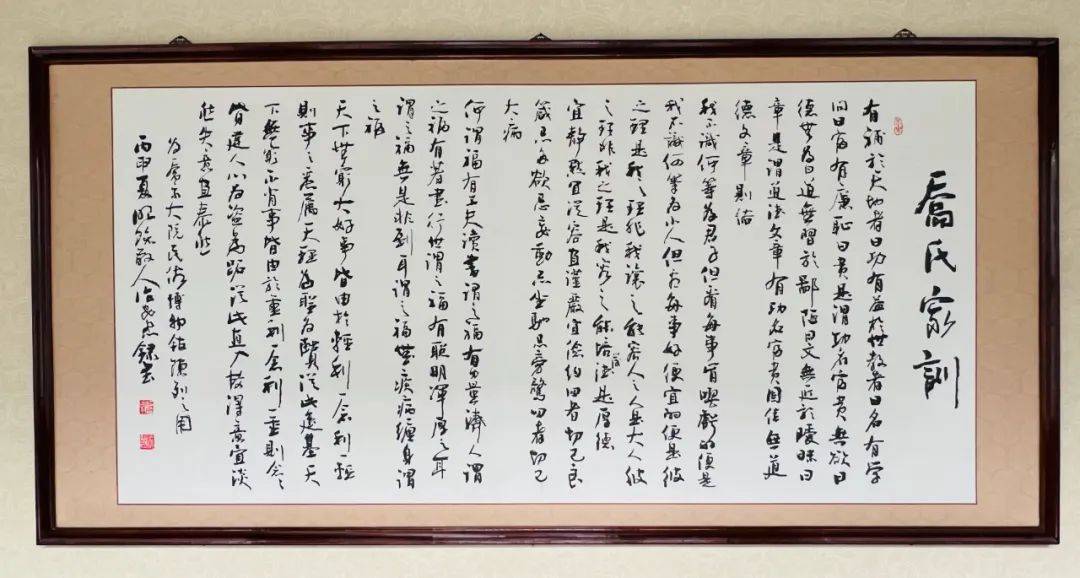 喬氏家訓
有補於天地者曰功有益於世教者曰名有学
问曰富有廉耻曰貴是謂功名富貴無欲曰
德無為曰道無習於鄙陋曰文無近於曖昧曰
章是謂道德文章有功名富貴固佳無道
德文章則俗
我不識何等為君子但看每事肯喫虧的便是
我不識何等為小人但看每事好便宜的便是彼
之理是我之理非我讓之能容人之人是大人彼
之理非我之理是我容之能培德是厚德
宜静默宜從容宜謹嚴宜儉約四者切己良
箴忌多欲忌妄動忌坐馳忌旁騖四者切己
大病
何謂福有工夫读書謂之福有力量濟人謂
之福有著書行世謂之福有聪明渾厚之
謂之福無是非到耳謂之福無疾病纏身謂
之福
天下無窮大好事皆由於輕利一念利一輕
則事事悉属天理為聖為賢從此進基天
下無窮不肖事皆由於重利一念利一重則念念
皆違人心為盗為跖從此直入故得意宜淡
然失意宜泰然
為喬家大院民俗博物馆陳列之用
丙申夏
錄書